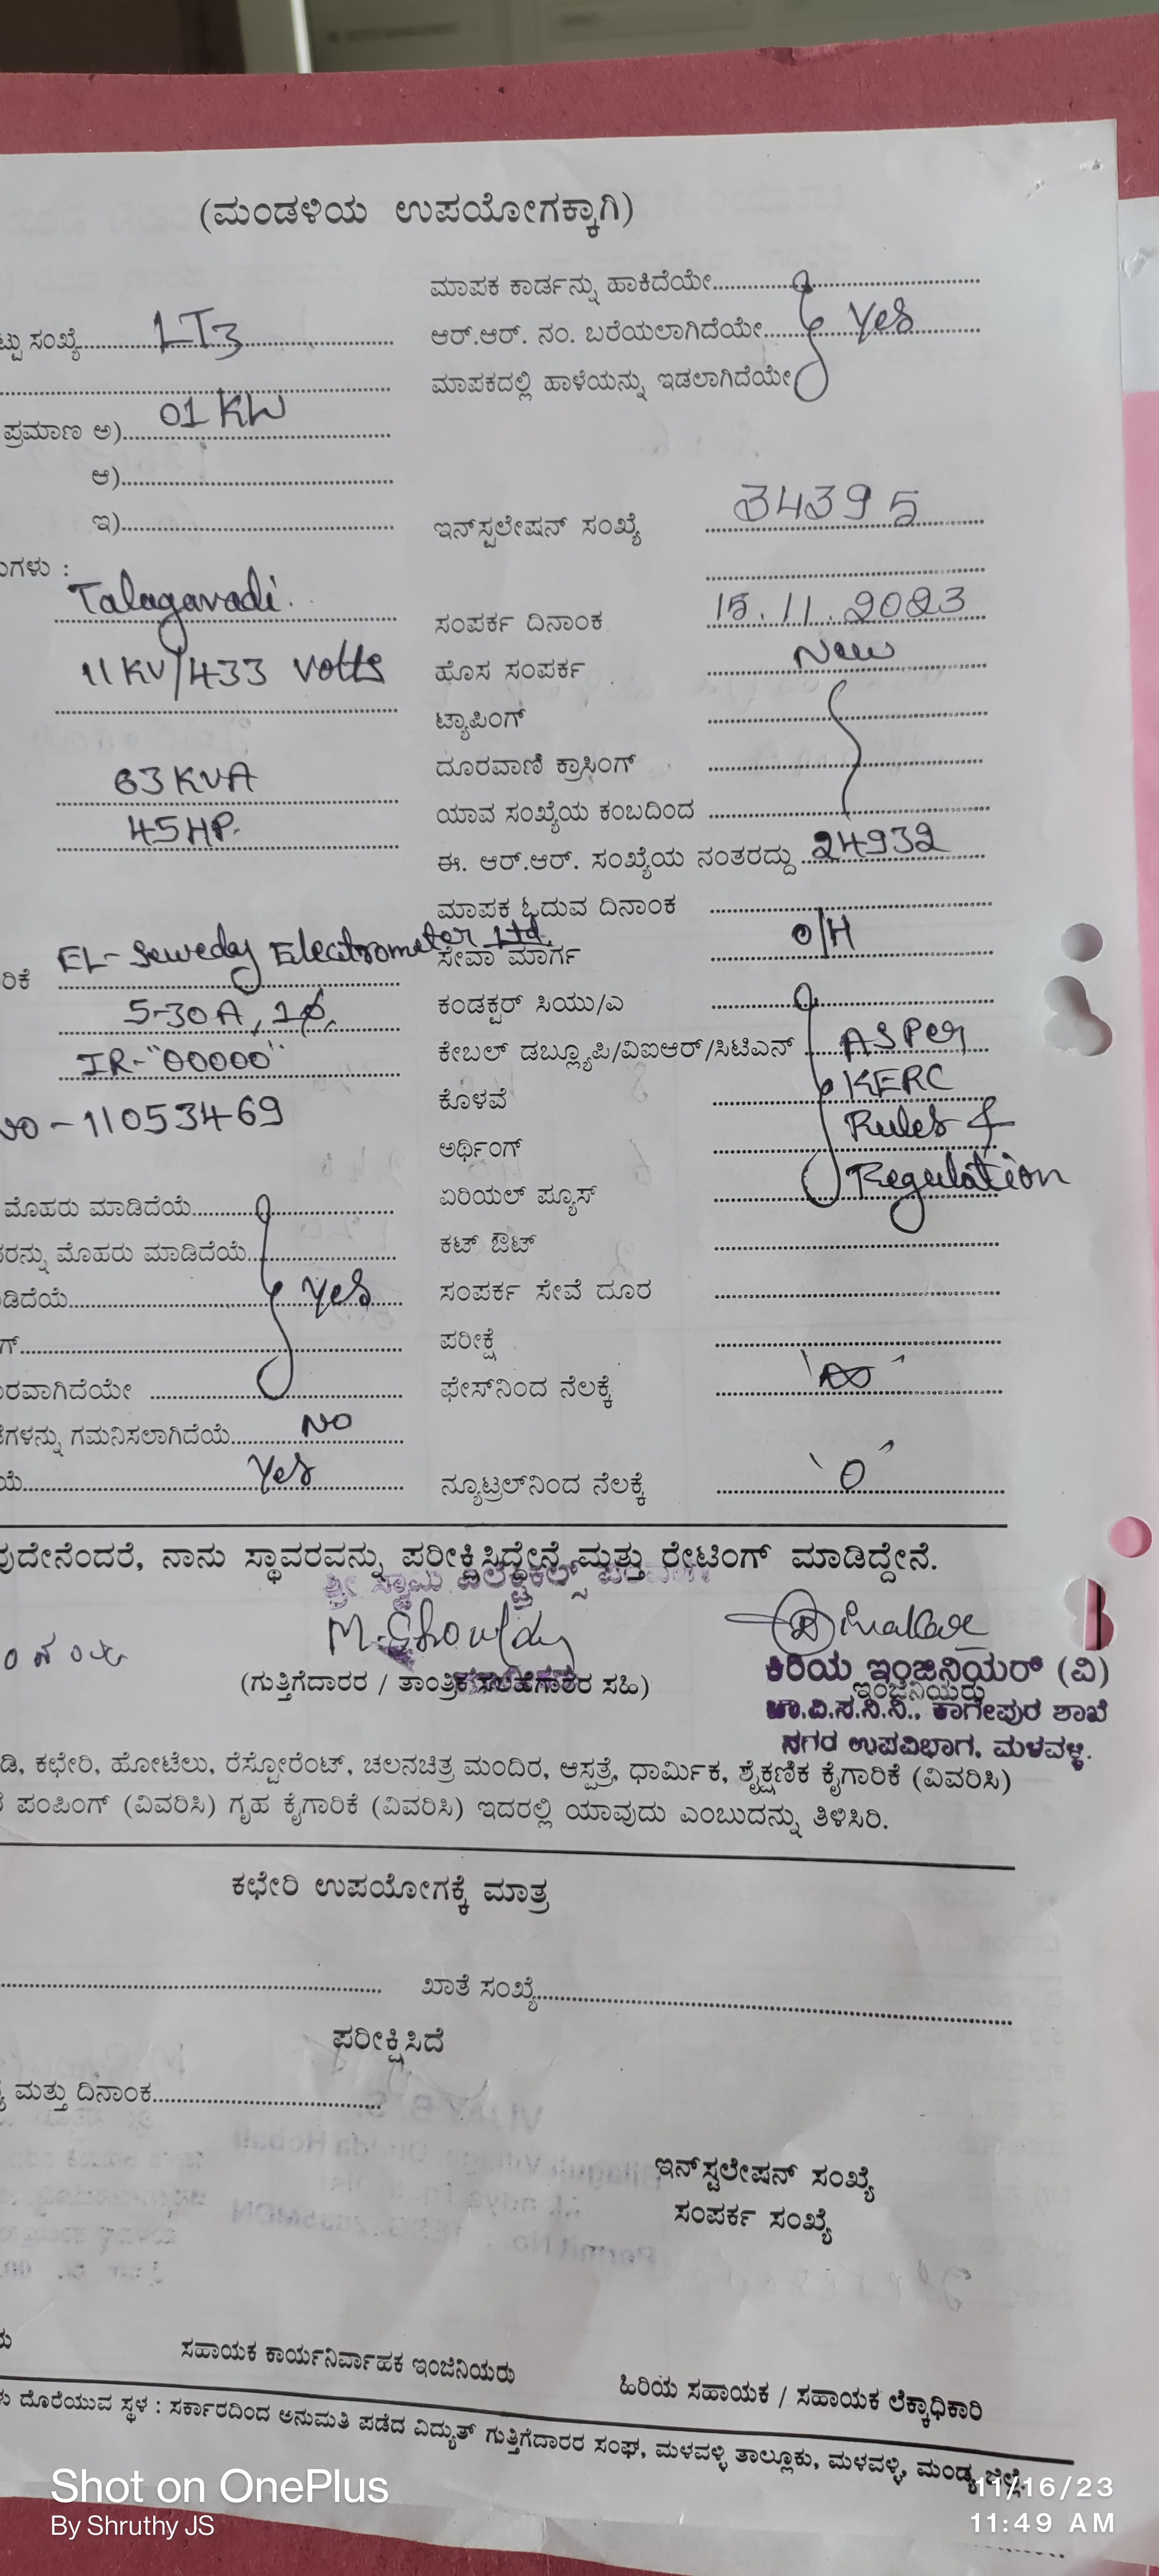 (ಮಂಡಳಿಯ ಉಪಯೋಗಕ್ಕಾಗಿ)
ಮಾಪಕ ಕಾರ್ಡನ್ನು ಹಾಕಿದೆಯೇ
ಸಂಖ್ಯೆ LT3 ಆರ್.ಆರ್. ನಂ. ಬರೆಯಲಾಗಿದೆಯೇ Yes
ಮಾಪಕದಲ್ಲಿ ಹಾಳೆಯನ್ನು ಇಡಲಾಗಿದೆಯೇ
ಪ್ರಮಾಣ ಅ) 01 KW
ಆ)
ಇ) ಇನ್‌ಸ್ಟಲೇಷನ್ ಸಂಖ್ಯೆ 34395
ಗಳು :
Talagavadi. ಸಂಪರ್ಕ ದಿನಾಂಕ 15.11.2023
11KV/433 volts ಹೊಸ ಸಂಪರ್ಕ New
ಟ್ಯಾಪಿಂಗ್
63 KVA ದೂರವಾಣಿ ಕ್ರಾಸಿಂಗ್
45HP. ಯಾವ ಸಂಖ್ಯೆಯ ಕಂಬದಿಂದ
ಈ. ಆರ್.ಆರ್. ಸಂಖ್ಯೆಯ ನಂತರದ್ದು 24932
ಮಾಪಕ ಓದುವ ದಿನಾಂಕ
ರಿಕೆ EL-Sewedy Electrometer Ltd. ಸೇವಾ ಮಾರ್ಗ O/H
5-30A, 1ϕ, ಕಂಡಕ್ಟರ್ ಸಿಯು/ಎ
IR-"00000" ಕೇಬಲ್ ಡಬ್ಲ್ಯೂಪಿ/ವಿಐಆರ್/ಸಿಟಿಎನ್ AS Per
NO - 11053469 ಕೊಳವೆ KERC
ಅರ್ಥಿಂಗ್ Rules &
ಮೊಹರು ಮಾಡಿದೆಯೆ ಏರಿಯಲ್ ಪ್ಯೂಸ್ Regulation
ರನ್ನು ಮೊಹರು ಮಾಡಿದೆಯೆ ಕಟ್ ಔಟ್
ಡಿದೆಯೆ Yes ಸಂಪರ್ಕ ಸೇವೆ ದೂರ
ಗ್ ಪರೀಕ್ಷೆ
ರವಾಗಿದೆಯೇ ಫೇಸ್‌ನಿಂದ ನೆಲಕ್ಕೆ '∞'
ಗಳನ್ನು ಗಮನಿಸಲಾಗಿದೆಯೆ NO
ಯೆ Yes ನ್ಯೂಟ್ರಲ್‌ನಿಂದ ನೆಲಕ್ಕೆ '0'
ವುದೇನೆಂದರೆ, ನಾನು ಸ್ಥಾವರವನ್ನು ಪರೀಕ್ಷಿಸಿದ್ದೇನೆ ಮತ್ತು ರೇಟಿಂಗ್ ಮಾಡಿದ್ದೇನೆ.
(ಗುತ್ತಿಗೆದಾರರ / ತಾಂತ್ರಿಕ ಸಲಹೆಗಾರರ ಸಹಿ)
ಕಿರಿಯ ಇಂಜಿನಿಯರ್ (ವಿ)
ಇಂಜಿನಿಯರು
ಚಾ.ವಿ.ಸ.ನಿ.ನಿ., ಕಾಗೇಪುರ ಶಾಖೆ
ನಗರ ಉಪವಿಭಾಗ, ಮಳವಳ್ಳಿ.
ಡಿ, ಕಛೇರಿ, ಹೋಟೆಲು, ರೆಸ್ಟೋರೆಂಟ್, ಚಲನಚಿತ್ರ ಮಂದಿರ, ಆಸ್ಪತ್ರೆ, ಧಾರ್ಮಿಕ, ಶೈಕ್ಷಣಿಕ ಕೈಗಾರಿಕೆ (ವಿವರಿಸಿ)
ಪಂಪಿಂಗ್ (ವಿವರಿಸಿ) ಗೃಹ ಕೈಗಾರಿಕೆ (ವಿವರಿಸಿ) ಇದರಲ್ಲಿ ಯಾವುದು ಎಂಬುದನ್ನು ತಿಳಿಸಿರಿ.
ಕಛೇರಿ ಉಪಯೋಗಕ್ಕೆ ಮಾತ್ರ
ಖಾತೆ ಸಂಖ್ಯೆ
ಪರೀಕ್ಷಿಸಿದೆ
ಮತ್ತು ದಿನಾಂಕ
ಇನ್‌ಸ್ಟಲೇಷನ್ ಸಂಖ್ಯೆ
ಸಂಪರ್ಕ ಸಂಖ್ಯೆ
ಸಹಾಯಕ ಕಾರ್ಯನಿರ್ವಾಹಕ ಇಂಜಿನಿಯರು
ಹಿರಿಯ ಸಹಾಯಕ / ಸಹಾಯಕ ಲೆಕ್ಕಾಧಿಕಾರಿ
ದೊರೆಯುವ ಸ್ಥಳ : ಸರ್ಕಾರದಿಂದ ಅನುಮತಿ ಪಡೆದ ವಿದ್ಯುತ್ ಗುತ್ತಿಗೆದಾರರ ಸಂಘ, ಮಳವಳ್ಳಿ ತಾಲ್ಲೂಕು, ಮಳವಳ್ಳಿ, ಮಂಡ್ಯ ಜಿಲ್ಲೆ.
Shot on OnePlus
By Shruthy JS
11/16/23
11:49 AM